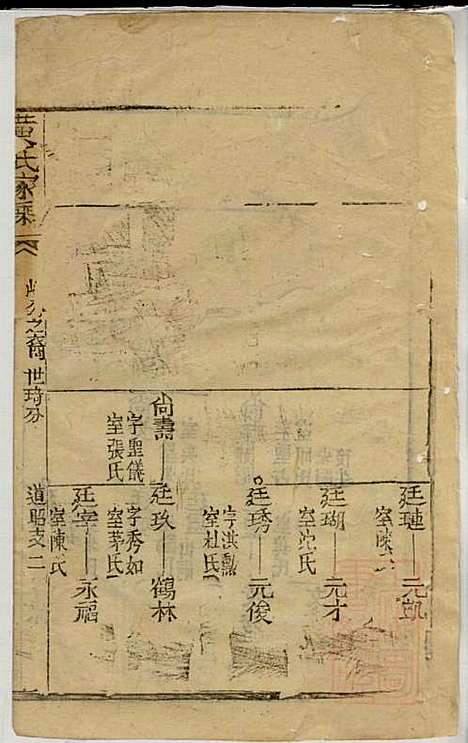 廷璉 元凱
室陳
廷瑚 元才
室沈氏
廷琇 元俊
字洪勲
室杜氏
尙壽
字聖儀
室張氏
廷玖 鶴林
字秀如
室茅氏
廷宰 永福
室陳氏
黃氏家乘
之裔 世琦分
道昭支二